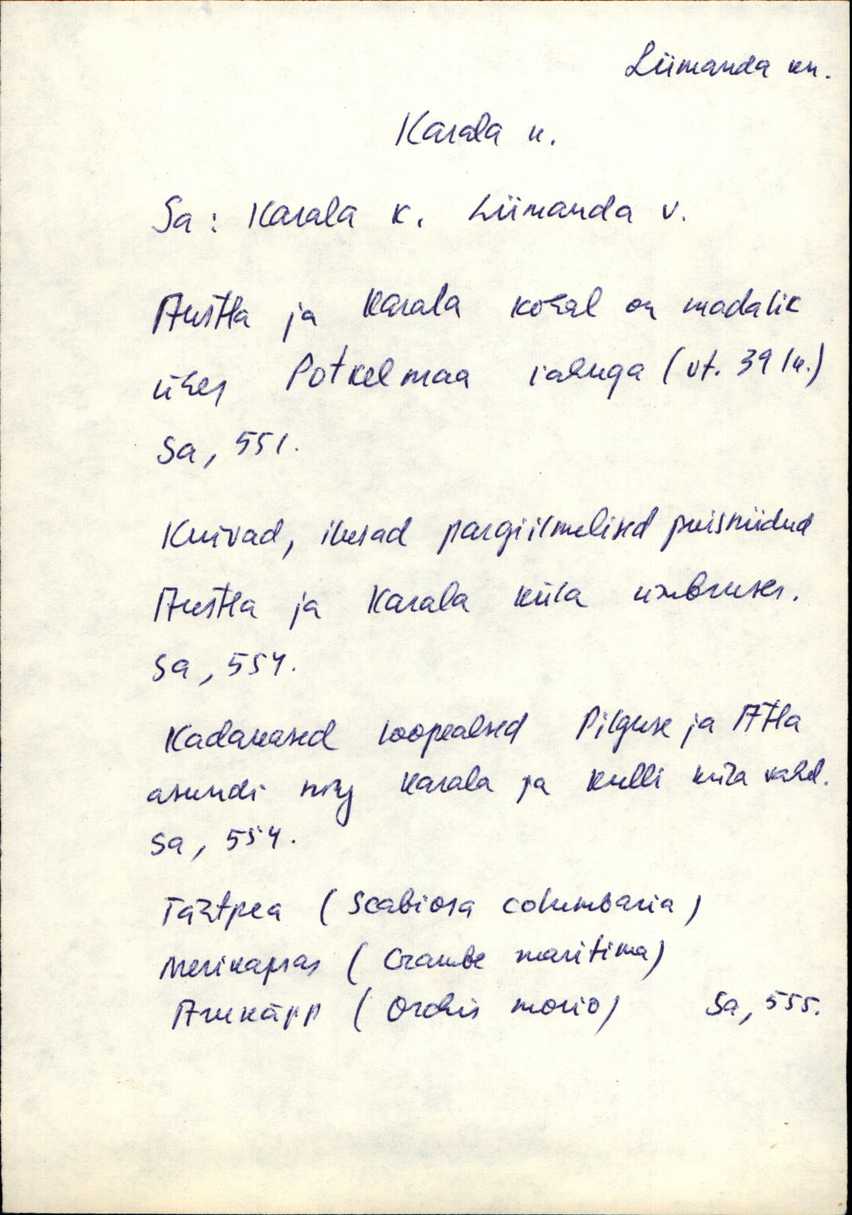 Lümanda kn.
Karala k.
Sa: Karala k. Lümanda v.
Austla ja Karala kohal on madalik
ühes Potkelmaa rabaga (vt. 39 lk.)
Sa, 551.
Kuivad, ilusad pargiilmelised puisniidud
Austla ja Karala küla ümbruses.
Sa, 554.
Kadakased loopealsed Pilguse ja Atla
asundi ning Karala ja Kulli küla vahel.
Sa, 554.
Tähtpea (Scabiosa columbaria)
Merikapsas (Crambe maritima)
Arukäpp (Orchis morio) Sa, 555.